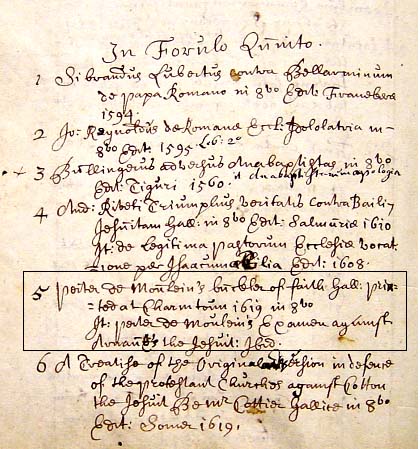 In Forulo Quinto.
1 Sibrandus Lubertus contra Bellarminum
de Papa Romano in 8vo Edit: Franekeræ
1594.
2 Jo: Reynoldus de Romanæ Eccl: Idololatria in
8vo Edit: 1595 Lib: 2o
+ 3 Bullingerus adversus Anabaptistas in 8vo
Edit: Tiguri 1560.
4 And: Riveti Triumphus veritatis contra Baily
Jesuitam Gall: in 8vo Edit: Salmuriæ 1610
It: de Legitima Pastorum Ecclesiæ vocat
=ione per Isaacum Edit: 1608.
5 Peiter de Moulein's buckler of faith Gall: Prin
=ted at Charintoun 1619 in 8vo
It: Peiter de Moulein's Examen against
Arnaux the Jesuit: Ibid.
6 A Treatise of the Originall version in defence
of the protestant Churches against Cotton
the Jesuit Be Mr Cottier Gallice in 8vo
Edit: 1619.